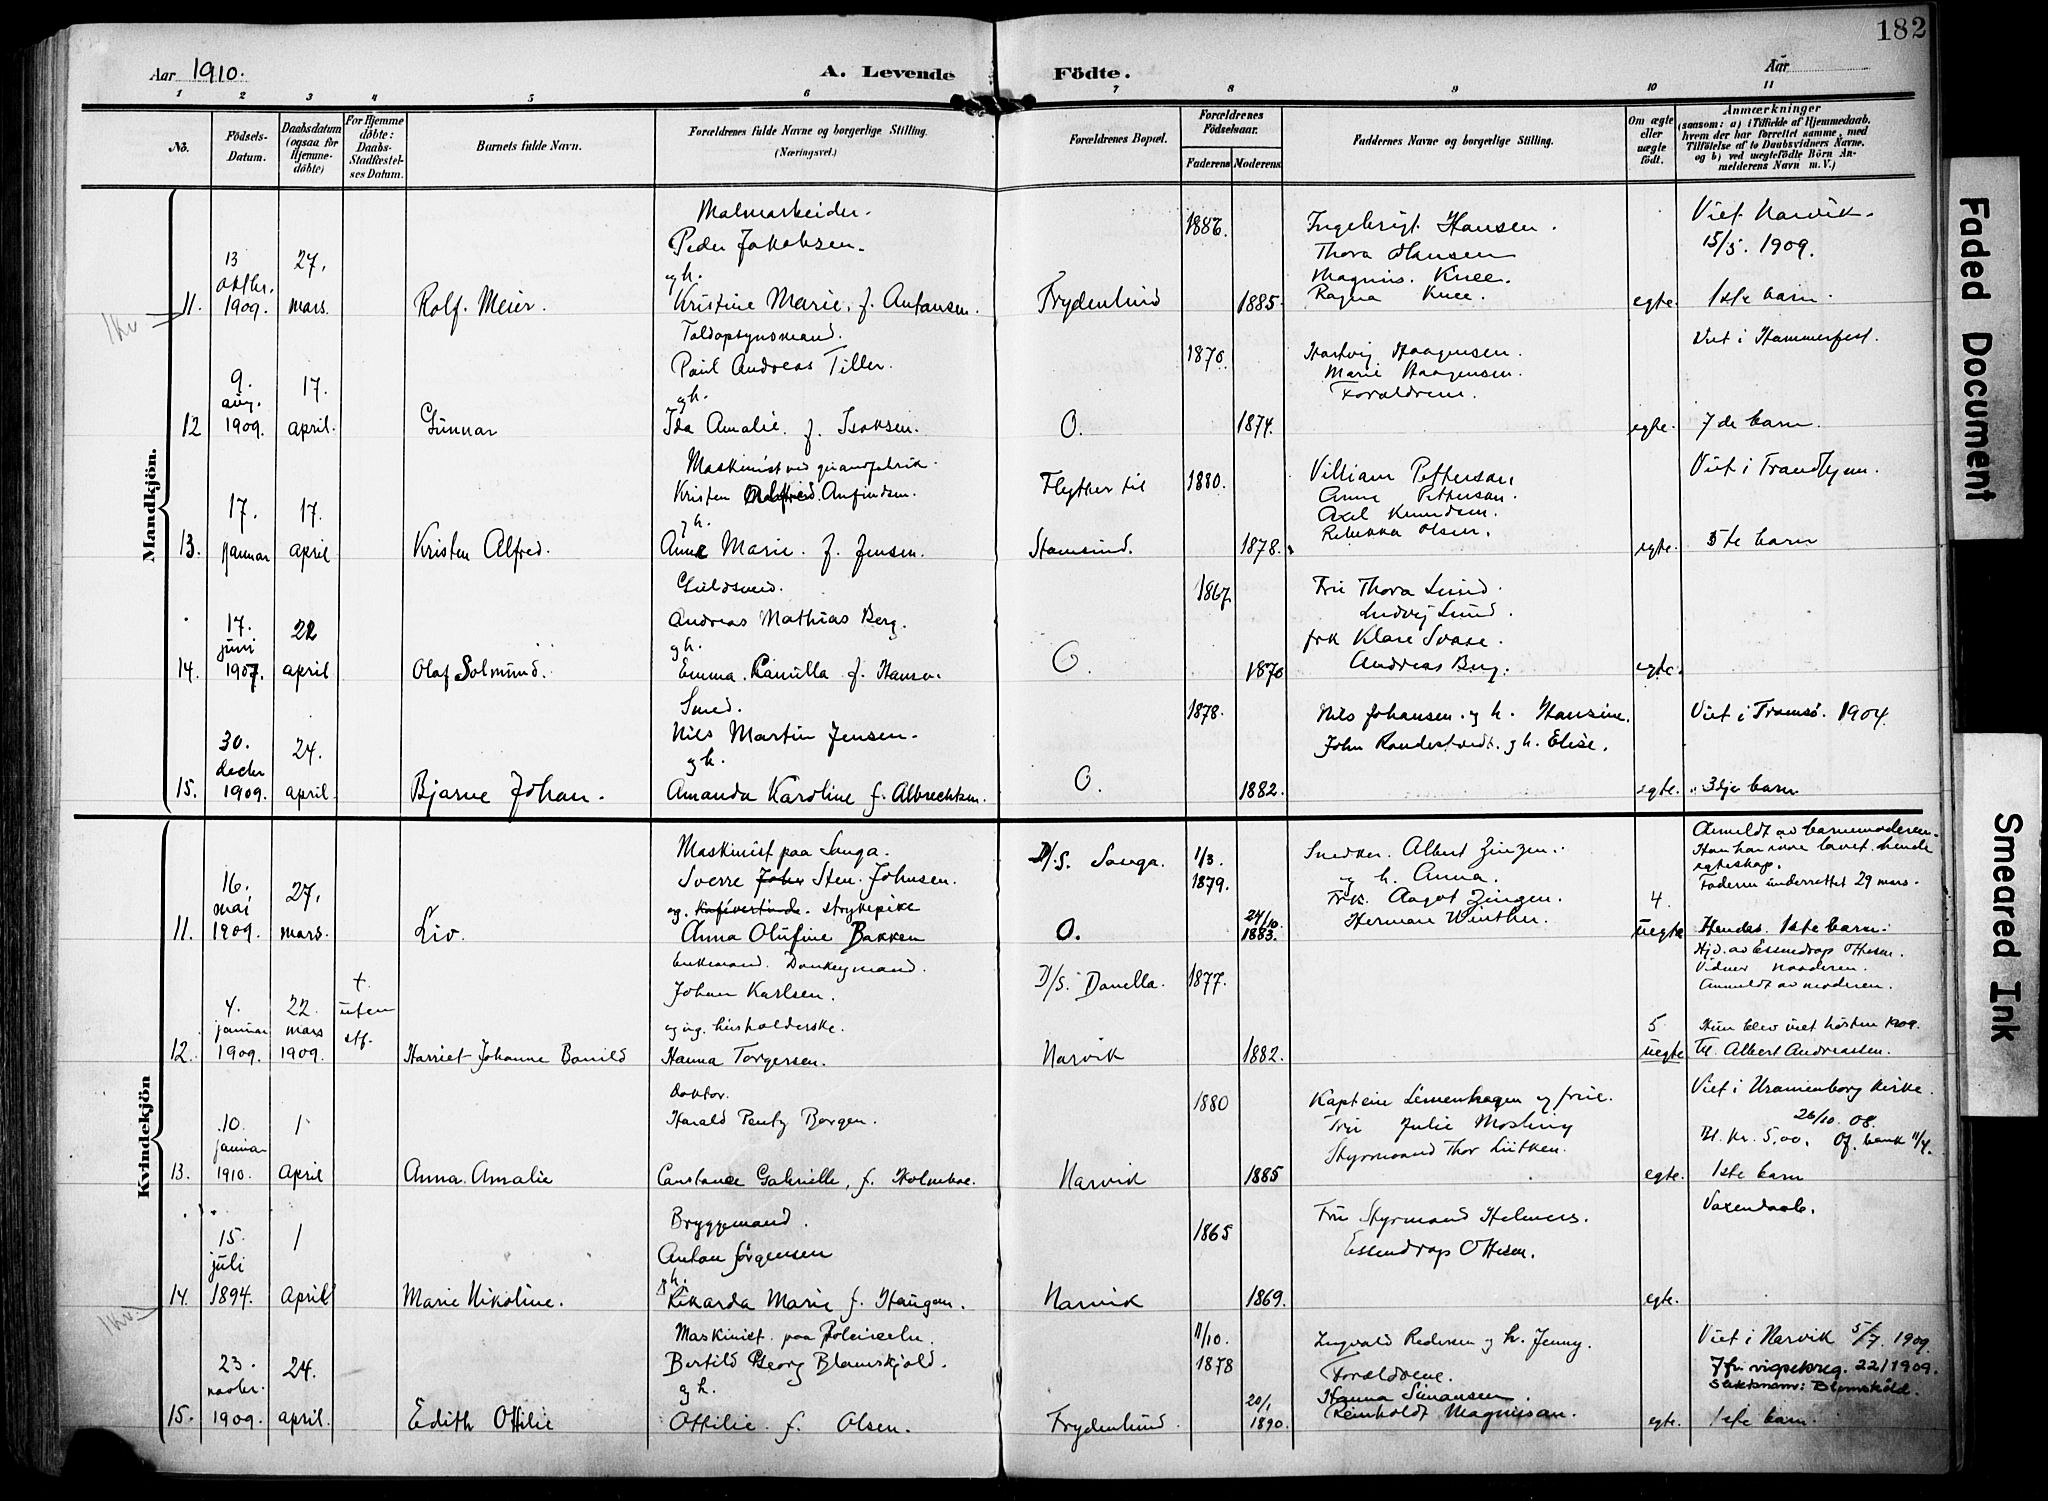 182
Aar 1910.
A. Levende Födte.
Aar
1 2 3 4 5 6 7 8 9 10 11
No.
Födsels-Datum.
Daabsdatum (ogsaa for Hjemme-döbte)
For Hjemme döbte: Daabs-Stadfæstel-ses Datum.
Barnets fulde Navn.
Forældrenes fulde Navne og borgerlige Stilling.
(Næringsvei.)
Forældrenes Bopæl.
Forældrenes Födselsaar.
Faderens Moderens
Faddernes Navne og borgerlige Stilling.
Om ægte eller uægte födt.
Anmærkninger
(saasom: a) i Tilfælde af Hjemmedaab.
hvem der har forrettet samme, med
Tilföielse af to Daabsvidners Navne,
og b) ved uægtefödte Börn An-
melderens Navn m. V.)
Mandkjön.
11.
13 oktbr. 1909.
27. mars.
Rolf. Meier.
Malmarbeider.
Peder Jakobsen.
og h.
Kristine Marie. f. Antonsen.
Frydenlund
1886.
1885.
Ingebrigt Hansen.
Thora Hansen
Magnus. Knee.
Ragna Knee.
egte.
Viet. Narvik.
15/5. 1909.
1ste barn.
12
9. aug. 1909.
17. april.
Gunnar
Toldopsynsmand.
Paul Andreas Tiller.
og h.
Ida Amalie. f. Isaksen.
O.
1870.
1874.
Hartvig Haagensen.
Marie Haagensen.
Forældrene.
egte.
Viet i Hammerfest.
7de barn.
13.
17. januar
17. april
Kristen Alfred.
Maskinist ved guanofabrik.
Kristen Anfindsen.
og h.
Anne Marie. f. Jensen.
Flytter til
Stamsund.
1880.
1878.
Villiam Petterson,
Anna Petterson.
Axel Knudsen.
Rebekka Olsen.
egte.
Viet i Trondhjem.
5te barn
14.
17. juni 1907.
22 april
Olaf Solmund.
Guldsmed.
Andreas Mathias Berg.
og h.
Emma. Kamilla f. Hansen.
O.
1867.
1870
Fru Thora Lund.
Ludvig Lund.
frk Klare Svare.
Andreas Berg.
egte.
15.
30. decbr 1909.
24. april.
Bjarne Johan.
Smed.
Nils Martin Jensen.
og h.
Amanda Karoline f. Albrechtsen.
O.
1878.
1882.
Nils Johansen. og h. Hansine.
John. og h. Elise.
egte.
Viet i Tromsø. 1904.
3dje barn
Kvindekjön
11.
16. mai 1909.
27. mars.
Liv.
Maskinist paa Sanga.
Sverre John Sten. Johnsen.
og. Kafévertinde. strykepike
Anna Olufine Bakken
D/S. Sanga.
O.
1/3. 1879.
24/10 1883.
Snedker. Albert Zinzen.
og h. Anna.
Frk. Aagot Zingen.
Herman Winther.
4. uegte
Anmeldt av barnemoderen.
Han har lovet hende
egteskap.
Faderen underrettet 29 mars.
Hendes. 1ste barn.
12.
4. januar 1909.
22. mars 1909.
+ uten stf.
Harriet Johanne Bonild
Enkemand. Donkeymand.
Johan Karlsen.
og ug. husholderske.
Hanna Torgersen.
D/S. Danella.
Narvik
1877.
1882.
5 uegte
Hjd. av Essendrop Ottesen.
Vidner.
Anmeldt av moderen.
Hun blev viet høsten 1909.
Til. Albert Andreassen.
13.
10. januar 1910.
1 April
Anna. Amalie
Doktor.
Harald Pentz Borgen.
Constance Gabrielle, f. Holmboe.
Narvik
1880
1885
Kaptein Limenhagen og frue.
Fru Julie Mosling
Styrmand Thor Lütken.
egte.
Viet i Uranienborg kirke.
26/10. 08.
Bl. Kr. 5,00. Of. bank 11/4.
1ste barn
14.
15. juli 1894.
1 April
Marie Nikoline.
Bryggemand.
Anton Jørgensen
og h.
Rikarda Marie f. Haugen.
Narvik
1865
1869.
Fru Styrmand Helmers.
Essendrop Ottesen.
egte.
Voxendaab.
15.
23. novbr. 1909.
24. april.
Edith Ottilie
Maskinist. paa
Bertild Georg Blomskjold.
og h.
Ottilie. f. Olsen.
Frydenlund.
11/10. 1878
20/1 1890.
Ingvald Pedersen og h. Jenny.
Forældrene.
Hanna Simonsen.
Reinholdt Magnusson.
egte.
Viet i Narvik 5/7. 1909.
7 fr. vigselsreg. 22/1909.
slektsnavn: Blomsköld.
1ste barn.
Faded Document
Smeared Ink